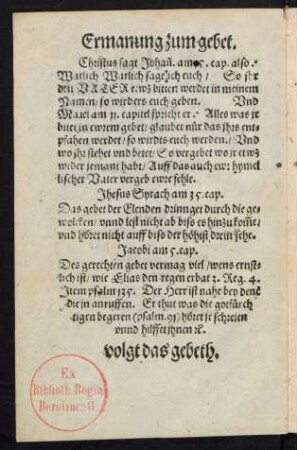 Ermanung zum gebet.
Christus sagt Johañ. am 15. cap. also.
Warlich Warlich sage ich euch / So jr
den VATER etwz bitten werdet in meinem
Namen / so wirders euch geben. Vnd
Marci am 11. capitel spricht er. Alles was jr
bittet in ewrem gebet / glaubet nůr das jhrs ent-
pfahen werdet / so wirdts euch werden. / Vnd
wo jhr stehet vnd betet / So vergebet wo jr etwz
wider jemant habt / Auff das auch ewr hymel
lischer Vater vergeb ewre fehle.
Jhesus Syrach am 35. cap.
Das gebet der Elenden dringet durch die ge-
wolcken / vnnd lest nicht ab biso es hinzu kom̃e /
vnd höret nicht auff biso der höhist drein sehe.
Jacobi am 5. cap.
Des gerechten gebet vermag viel / wens ernst-
lich ist / wie Elias den regen erbat 2. Reg. 4.
Item psalm 125. Der Herr ist nahe bey denẽ
die jn anruffen. Er thut was die gotfürch
tigen begeren (psalm. 91) höret jr schreien
vnnd hilffet jhnen ꝛc.
volgt das gebeth.
Ex
Biblioth. Regia
Berolinensi.